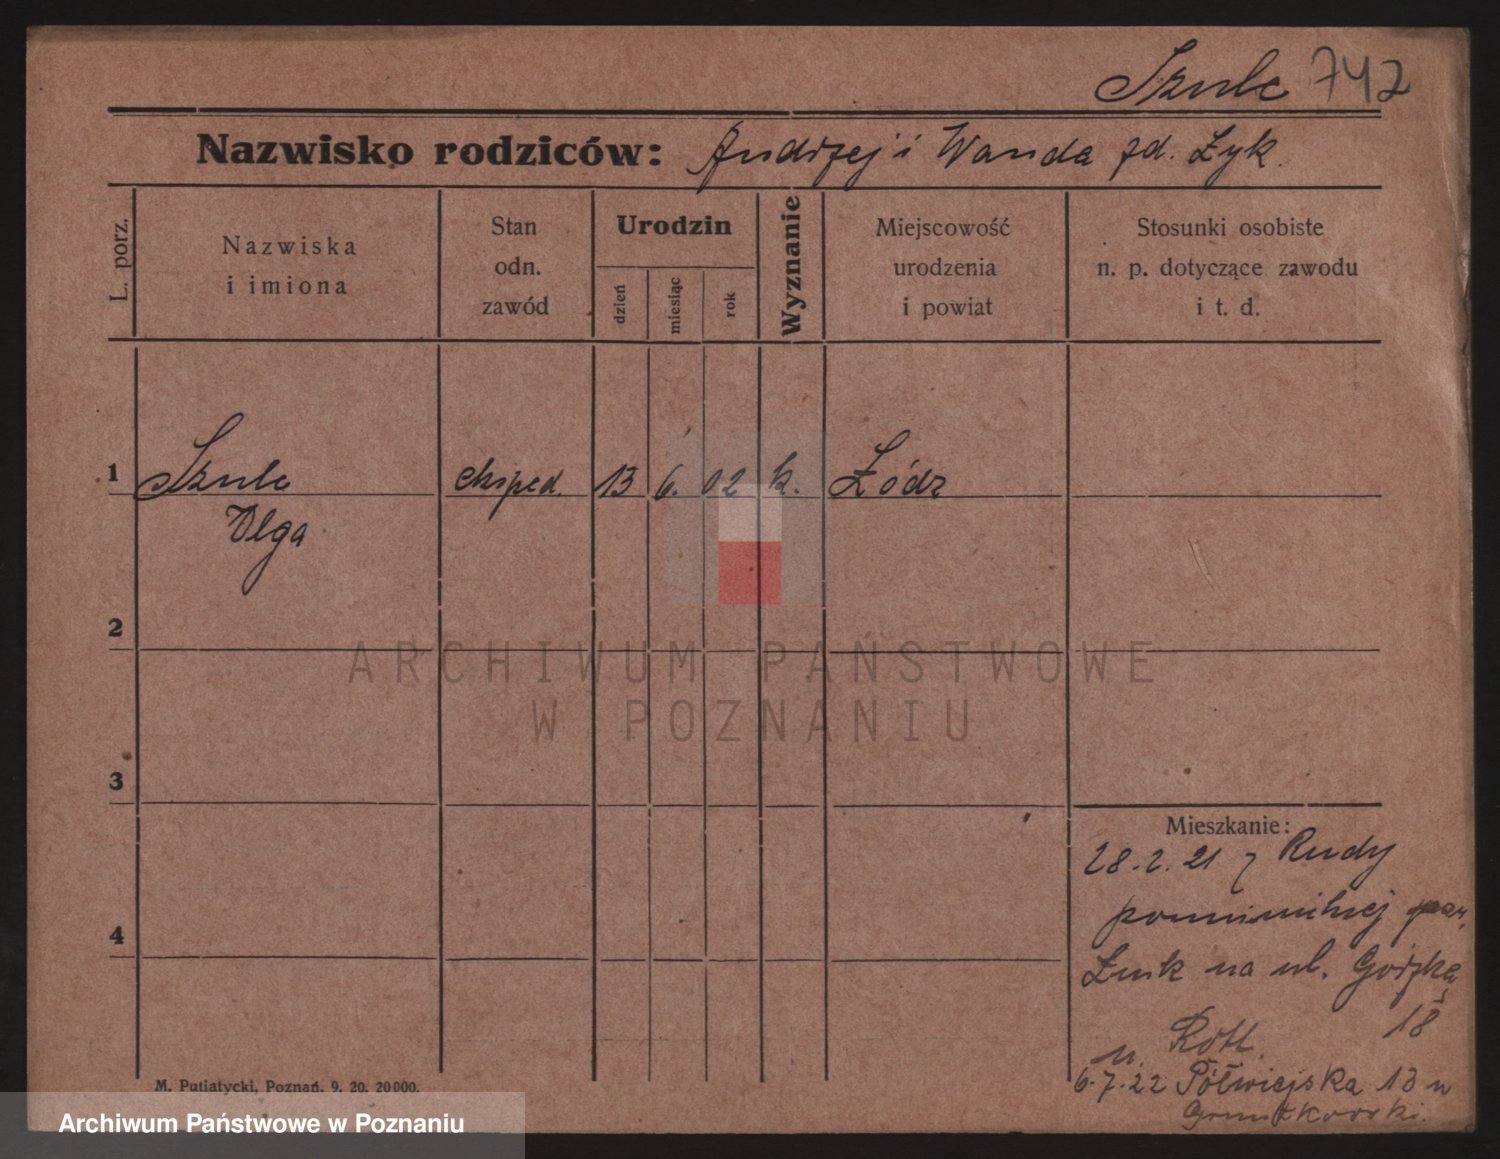 Szulc 742
Nazwisko rodziców: Andrzej i Wanda zd. Łyk.
L. porz.
Nazwiska
i imiona
Stan
odn.
zawód
Urodzin
dzień
miesiąc
rok
Wyznanie
Miejscowość
urodzenia
i powiat
Stosunki osobiste
n. p. dotyczące zawodu
i t. d.
1 Szulc eksped. 13 6. 02 k. Łódz
Olga
2
ARCHIWUM PAŃSTWOWE
W POZNANIU
3
Mieszkanie:
28.2.21 z Rudy
4
na ul. Górską
18
u. Rotl.
6.7.22 Półwiejska 13 u
M. Putiatycki, Poznań. 9. 20. 20000.
Archiwum Państwowe w Poznaniu